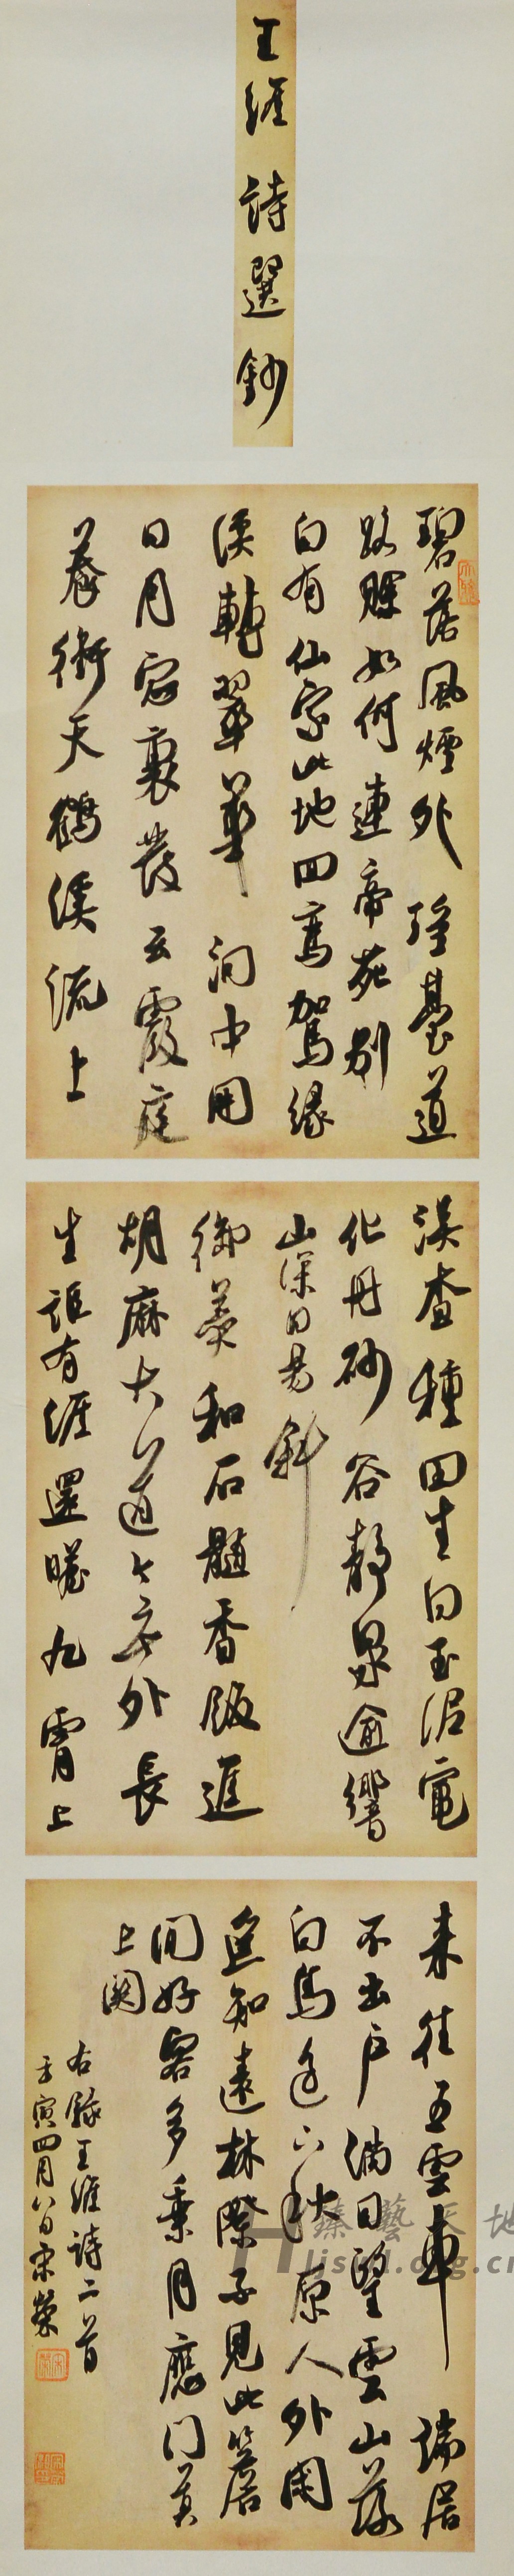 王維詩選鈔
碧落風煙外瑤臺道
路賒如何連帝苑別
自有仙家此地回鸞駕緣
溪轉翠華洞中開
日月窗裏發云霞庭
養衝天鶴溪流上
漢查種田生白玉泥竈
化丹砂谷靜泉逾響
山深日易斜
御羹和石髓香飯進
胡麻大道今無外長
生詎有涯還瞻九霄上
來往五雲車端居
不出戶滿目望雲山落
日鳥邊下秋原人外閒
遙知遠林際不見此簷
間好客多乘月應門莫
上關
右錄王維詩二首
壬寅四月八日宋榮
臻藝天地